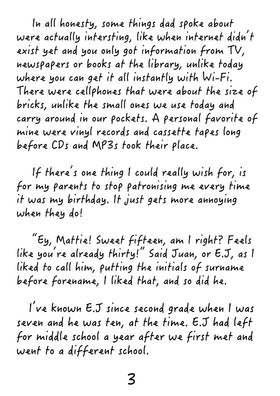 In all honesty, some things dad spoke about
were actually intersting, like when internet didn't
exist yet and you only got information from TV,
newspapers or books at the library, unlike today
where you can get it all instantly with Wi-Fi.
There were cellphones that were about the size of
bricks, unlike the small ones we use today and
carry around in our pockets. A personal favorite of
mine were vinyl records and cassette tapes long
before CDs and MP3s took their place.
If there's one thing I could really wish for, is
for my parents to stop patronising me every time
it was my birthday. It just gets more annoying
when they do!
"Ey, Mattie! Sweet fifteen, am I right? Feels
like you're already thirty!" Said Juan, or E.J, as I
liked to call him, putting the initials of surname
before forename, I liked that, and so did he.
I've known E.J since second grade when I was
seven and he was ten, at the time. E.J had left
for middle school a year after we first met and
went to a different school.
3